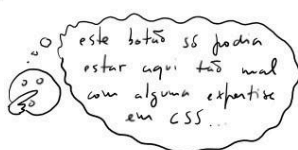 este botão só podia
estar aqui tão mal
com alguma expertise
em CSS...